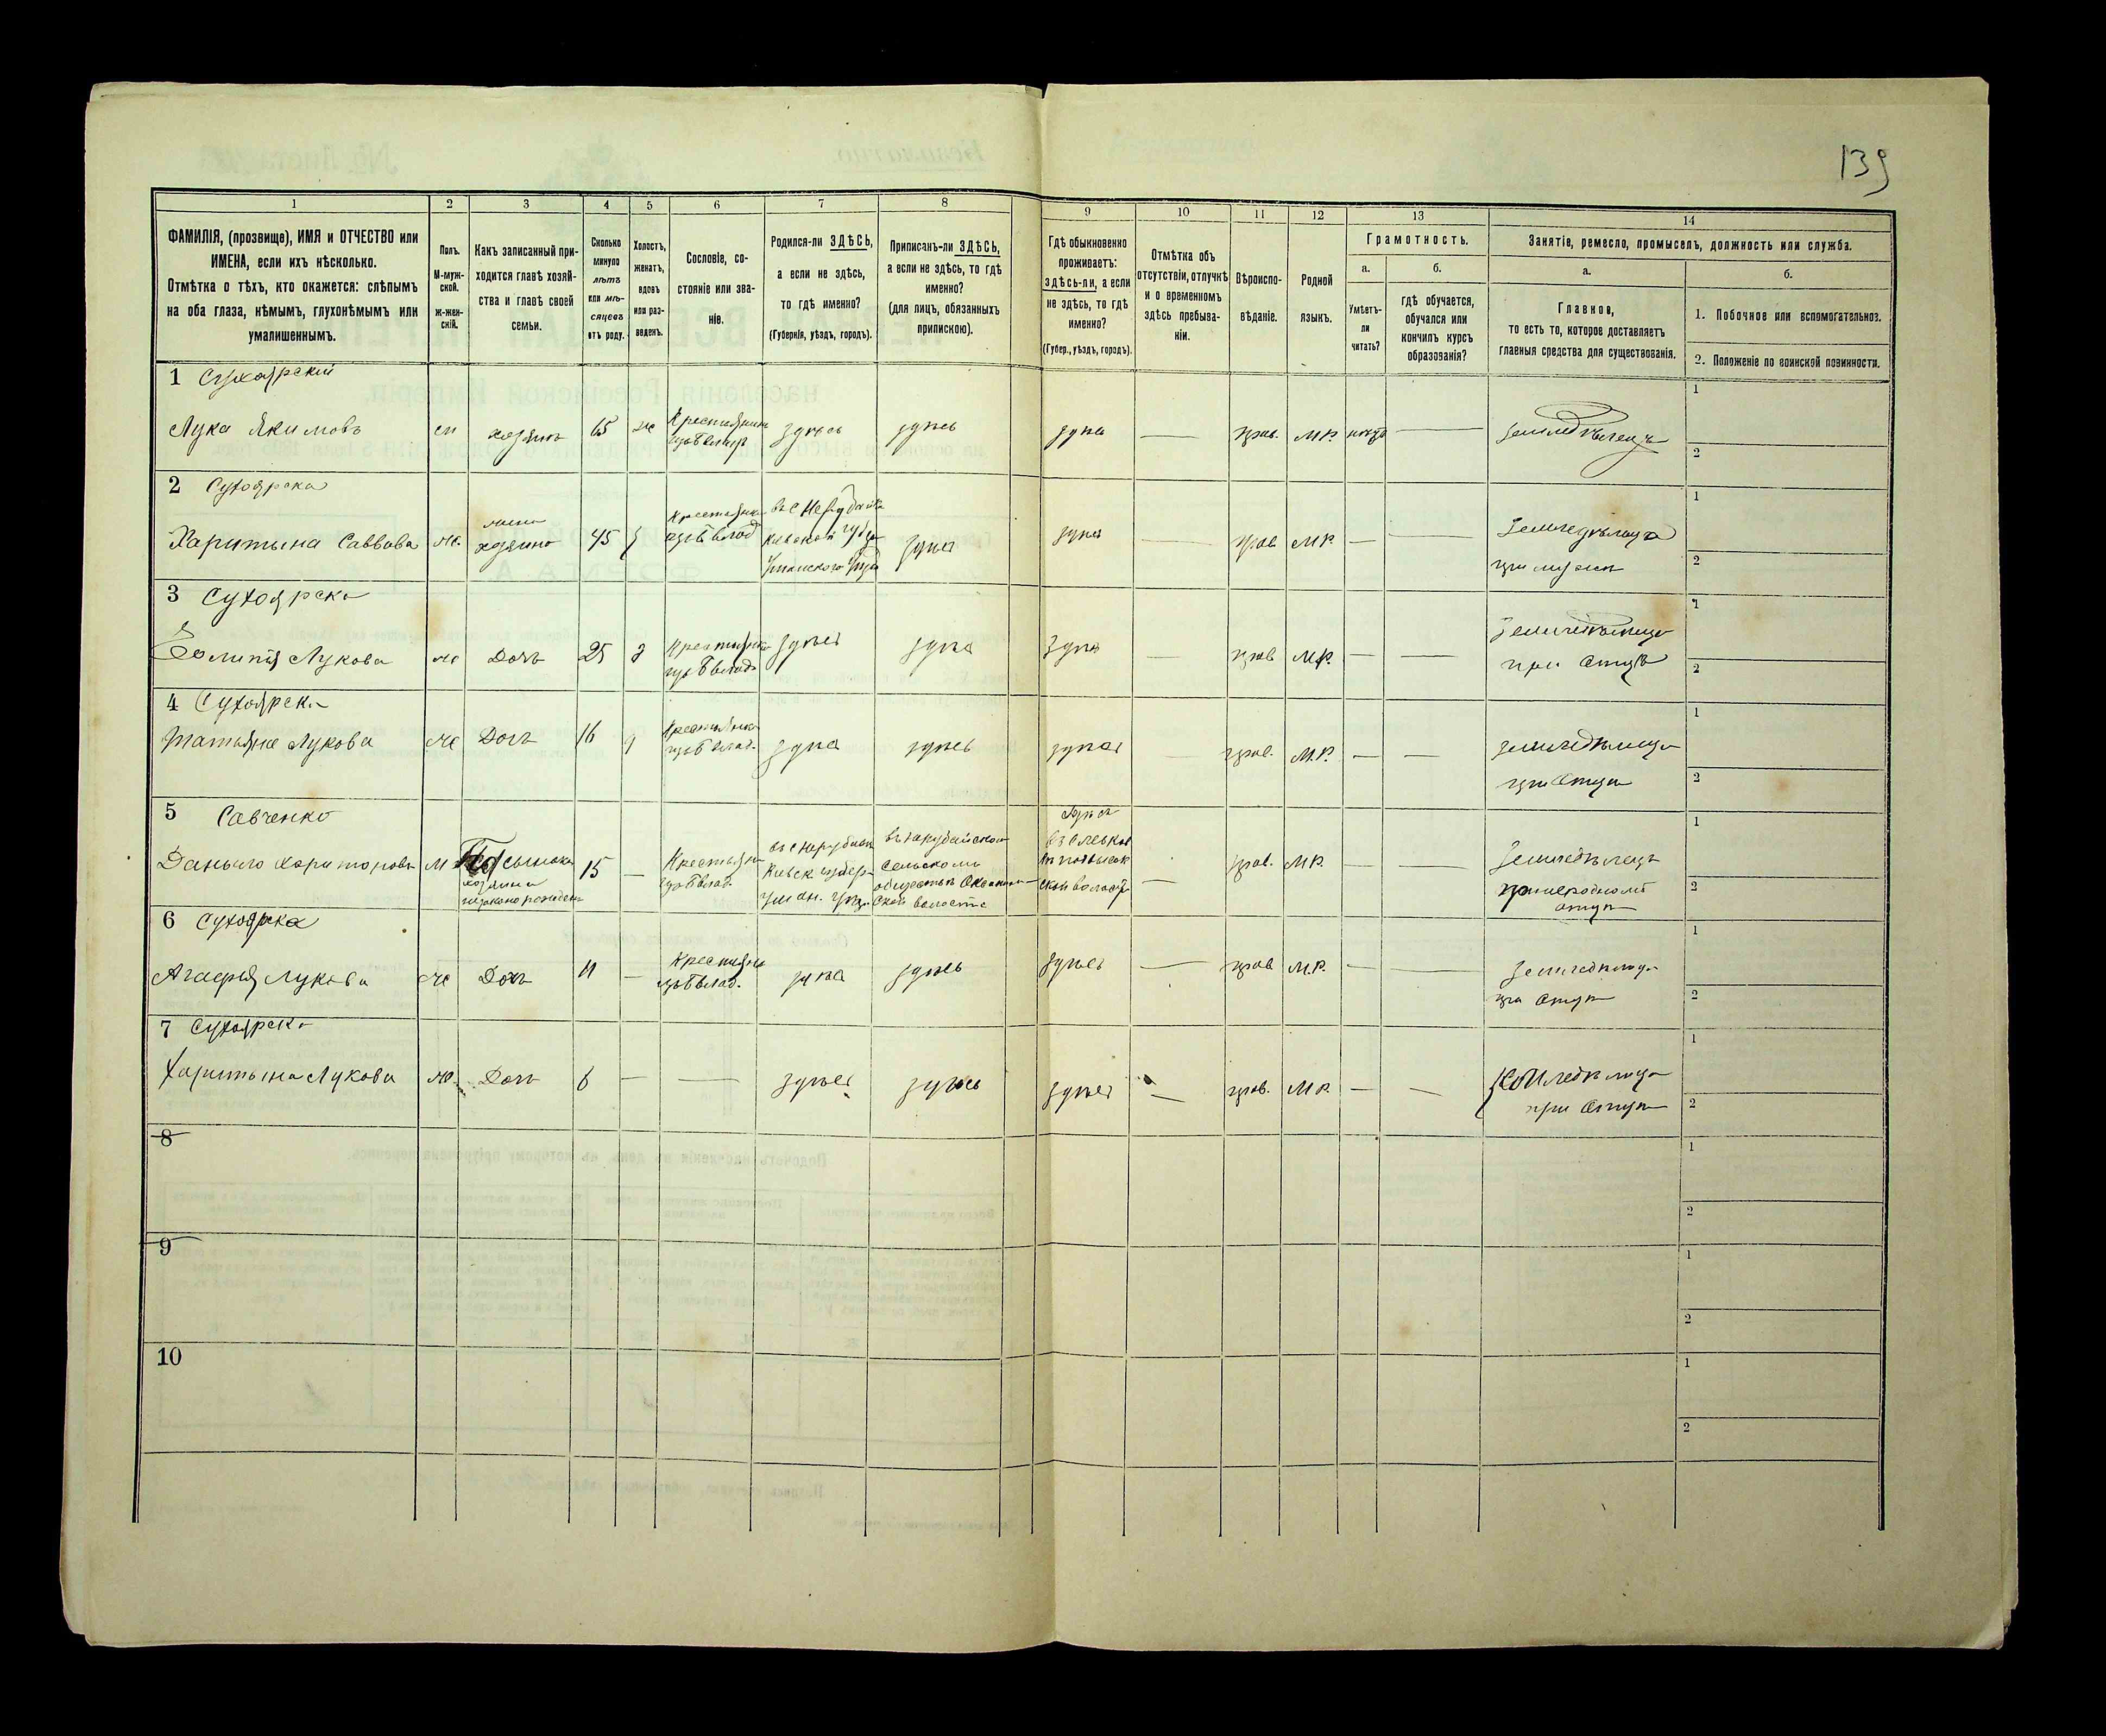 139
1 2 3 4 5 6 7 8 9 10 11 12 13 14
ФАМИЛІЯ, (прозвище), ИМЯ и ОТЧЕСТВО или
ИМЕНА, если ихъ нѣсколько.
Отмѣтка о тѣхъ, кто окажется: слѣпымъ
на оба глаза, нѣмымъ, глухонѣмымъ или
умалишеннымъ.
Полъ.
М-муж-
ской.
Ж-жен-
скій.
Какъ записанный при-
ходится главѣ хозяй-
ства и главѣ своей
семьи.
Сколько
минуло
лѣтъ
или мѣ-
сяцевъ
отъ роду.
Холостъ,
женатъ,
вдовъ
или раз-
веденъ.
Сословіе, со-
стояніе или зва-
ніе.
Родился-ли ЗДѢСЬ,
а если не здѣсь,
то гдѣ именно?
(Губернія, уѣздъ, городъ).
Приписанъ-ли ЗДѢСЬ,
а если не здѣсь, то гдѣ
именно?
(для лицъ, обязанныхъ
припискою).
Гдѣ обыкновенно
проживаетъ:
здѣсь-ли, а если
не здѣсь, то гдѣ
именно?
(Губер., уѣздъ, городъ).
Отмѣтка объ
отсутствіи, отлучкѣ
и о временномъ
здѣсь пребыва-
ніи.
Вѣроиспо-
вѣданіе.
Родной
языкъ.
Грамотность.
а.
Умѣетъ-
ли
читать?
б.
гдѣ обучается,
обучался или
кончилъ курсъ
образованія?
Занятіе, ремесло, промыселъ, должность или служба.
а.
Главное,
то есть то, которое доставляетъ
главныя средства для существованія.
б.
1. Побочное или вспомогательное.
2. Положеніе по воинской повинности.
1 Сухоярскій
Лука Якимовъ м хозяинъ 65 ж Крестьянинъ здѣсь здѣсь здѣсь — прав. М.Р. — земледѣлецъ
1
2
2 Сухоярска
Харитына Саввова ж. жена хозяина 45 Крестьянка Кіевской губер Уманского уѣзда здѣсь здѣсь — прав М.Р. — — Земледѣлица при мужѣ
1
2
3 Сухоярска
Лукова ж Дочь 25 Крестьянка здѣсь здѣсь здѣсь — прав М.Р. — — земледѣлица при отцѣ
1
2
4 Сухоярска
Татьяна Лукова ж Дочь 16 Крестьянка здѣсь здѣсь здѣсь — прав. М.Р. — — земледѣлица при отцѣ
1
2
5 Савченко
Даныло Харитоновъ М хозяина 15 — Кіевск губер Уман. уѣзд сельскому обществѣ волости — прав. М.Р. — — Земледѣлецъ отцѣ
1
2
6 Сухоярска
Агафія Лукова ж Дочь 11 — здѣсь здѣсь здѣсь — прав М.Р. — — земледѣлица при отцѣ
1
2
7 Сухоярска
Харитына Лукова ж. Дочь 6 — — здѣсь здѣсь здѣсь — прав. М.Р. — — Земледѣлица при отцѣ
1
2
8
1
2
9
1
2
10
1
2